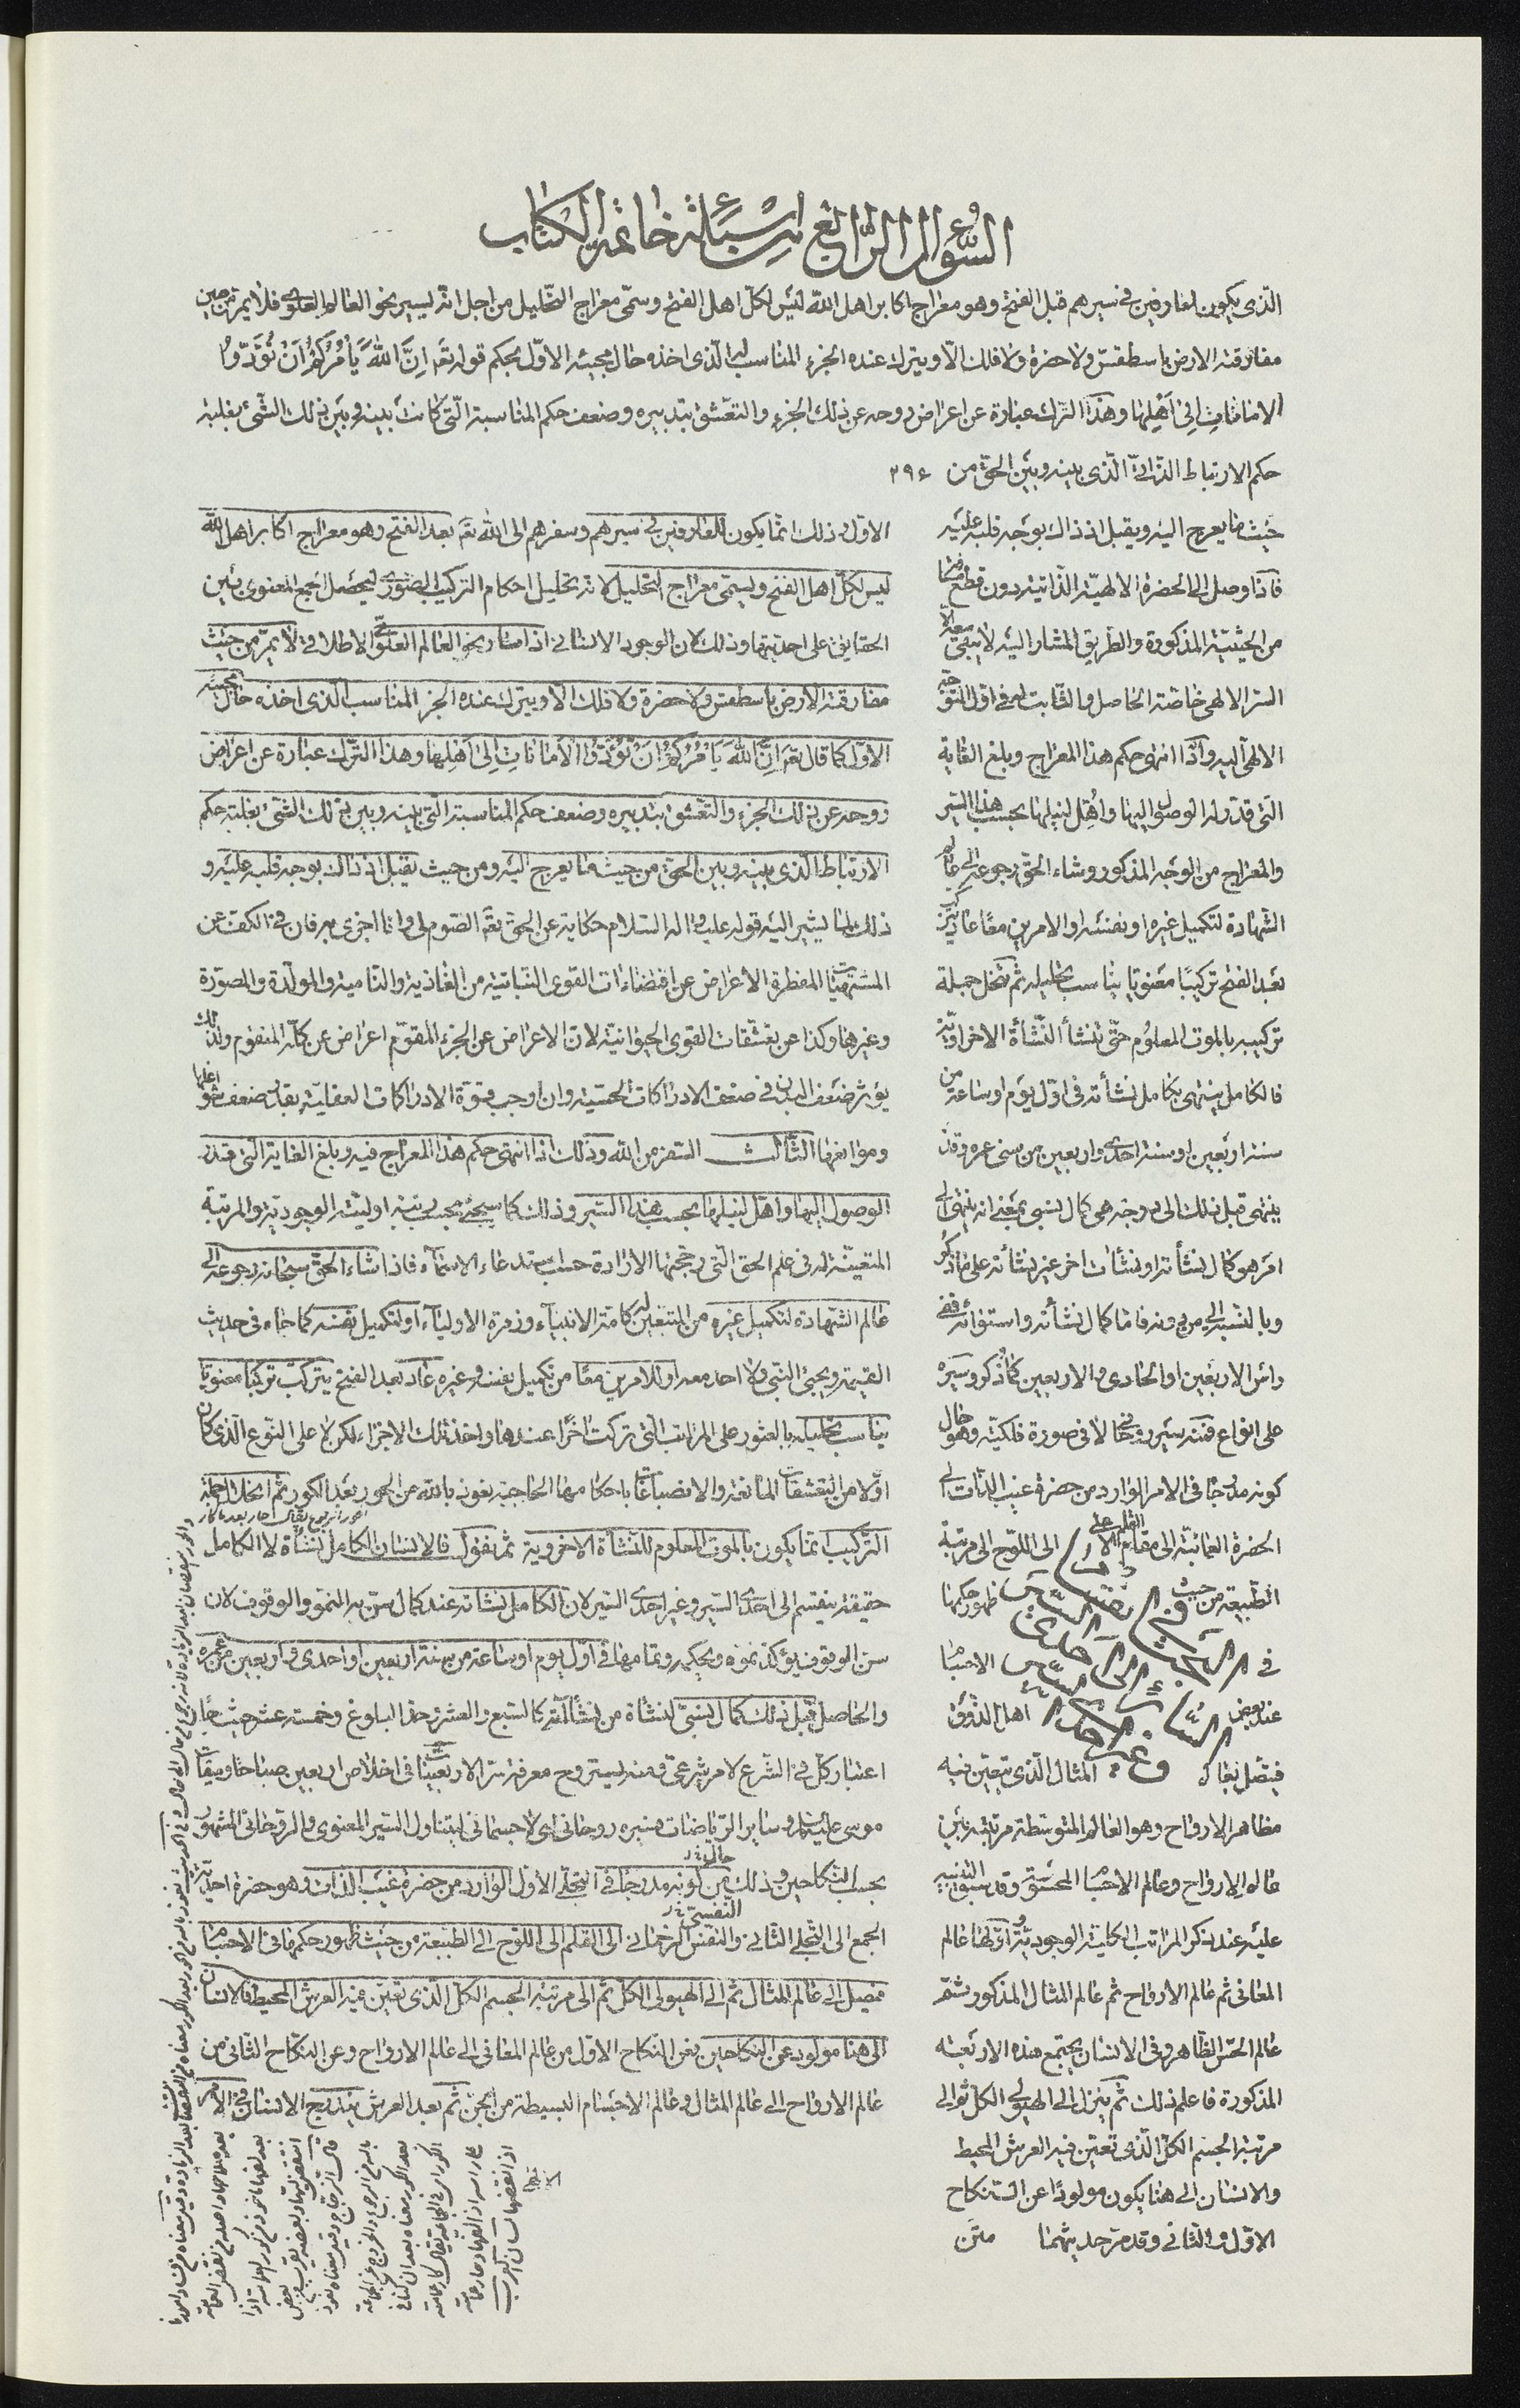 السؤال الرابع من اسئلة خاتمة الكتاب
الذى يكون للعارفين فى سيرهم قبل الفتح وهو معراج اكابر اهل الله ليس لكل اهل الفتح وسمى معراج التحليل من اجل انه يسير نحو العالم العلوى فلا يمر من حين
مفارقته الارض باسطقس ولا حضرة ولا فلك الا ويترك عنده الجزء المناسب له الذى اخذه حال مجيئه الاول بحكم قوله تعه اِنَّ اللهَ يَأمُرُكُمْ اَنْ تُؤَدُّوا
الامانات اِلى اَهْلِها وهذا الترك عبارة عن اعراض روحه عن ذلك الجزء والتعشق بتدبيره وضعف حكم المناسبة التى كانت بينه وبين ذلك الشئ بغلبة
حكم الارتباط الذاتى الذى بينه وبين الحق من ۲۹۶
حيث ما يعرج اليه ويقبل اذ ذاك بوجه قلبه عليه
فاذا وصل الى الحضرة الالهية الذاتية بدون قطع
من الحيثية المذكورة والطريق المشار اليه لا يبقى معه الا
السر الالهى خاصة الحاصل والثابت له فى اول التوجه
الالهى اليه واذا انتهى حكم هذا المعراج وبلغ الغاية
التى قدر له الوصول اليها واُهّل لنيلها بحسب هذا السير
والمعراج من الوجه المذكور وشاء الحق رجوعه الى عالم
الشهادة لتكميل غيره او نفسه او الامرين معا عاد يتركب
بعد الفتح تركيبًا معنويا يناسب تحليله ثم ينحل جملة
تركيبه بالموت المعلوم حتى تنشأ النشأة الاخراوية
فالكامل ينتهى بكامل نشأته فى اول يوم او ساعة من
سنة اربعين او سنة احدى واربعين من سنى عمره وقد
ينتهى قبل ذلك الى درجة هى كمال نسبى بمعنى انه ينتهى الى
امر هو كمال نشأته او نشأت اخر غير نشأته على ما ذكر
وبالنسبة الى من دونه فاما كمال نشأته واستوائه ففى
رأس الاربعين او الحادى والاربعين كما ذكر وسيره
على انواع فمنه سير روحانى لا فى صورة فلكية وهو حال
كونه مدرجا فى الامر الوارد من حضرة غيب الذات الى
الحضرة العمائية الى مقام القلم الاعلى الى اللوح الى مرتبة
الطبيعة من حيث ظهور حكمها
فى الاجسام
عند بعض اهل الذوق
فيتصل بعالم المثال الذى يتعين فيه
مظاهر الارواح وهو العالم المتوسطة مرتبته بين
عالم الارواح وعالم الاجسام المحسوس وقد سبق التنبيه
عليه عند ذكر المراتب الكلية الوجودية واولها عالم
المعانى ثم عالم الارواح ثم عالم المثال المذكور ثم
عالم الحس الظاهر وفى الانسان يجتمع هذه الاربعة
المذكورة فاعلم ذلك ثم ينزل الى الهيولى الكل ثم الى
مرتبة الجسم الكل الذى تعين فيه العرش المحيط
والانسان الى هنا يكون مولودًا عن النكاح
الاول والثانى وقد مر حديثهما متن
الاول وذلك انما يكون للعارفين فى سيرهم وسفرهم الى الله تعه بعد الفتح وهو معراج اكابر اهل الله
ليس لكل اهل الفتح ويسمى معراج التحليل لانه تحليل احكام التركيب الصورى ليحصل الجمع المعنوى بين
الحقايق على احديتها وذلك لان الوجود الانسانى اذا سار نحو العالم العلوى الاطلاقى لا يمر من حيث
مفارقته الارض باسطقس ولا حضرة ولا فلك الا ويترك عنده الجزء المناسب الذى اخذه حال مجيئه
الاول كما قال تعه اِنَّ اللهَ يَأمُرُكُمْ اَنْ تُؤَدُّوا الْاَماناتِ اِلى اَهْلِها وهذا الترك عبارة عن اعراض
روحه عن ذلك الجزء والتعشق بتدبيره وضعف حكم المناسبة التى بينه وبين ذلك الشئ بغلبة حكم
الارتباط الذى بينه وبين الحق من حيث ما يعرج اليه ومن حيث يقبل اذ ذاك بوجه قلبه عليه و
ذلك لما يشير اليه قوله عليه واله السلام حكاية عن الحق تعه الصوم لى وانا اجزى به فان فى الكف عن
المشتهيات المفطرة الاعراض عن اقتضاءات القوى النباتية من الغاذية والنامية والمولدة والمصورة
وغيرها وكذا عن تعشقات القوى الحيوانية لان الاعراض عن الجزء المقوم اعراض عن كله المتقوم ولذلك
يؤثر ضعف البدن فى ضعف الادراكات الحسية وان اوجب قوة الادراكات العقلية بقدر ضعف شواغلها
وموانعها الثالث السفر من الله وذلك اذا انتهى حكم هذا المعراج فيه وبلغ الغاية التى قدر
الوصول اليها واهل لنيلها بحسب هذا السير وذلك كما سيجئ بحسب نسبة اوليته الوجودية والمرتبة
المتعينة له فى علم الحق التى رجحتها الارادة حسب استدعاء الاسماء فاذا شاء الحق سبحانه رجوعه الى
عالم الشهادة لتكميل غيره من المتبعين له كامة الانبياء وزمرة الاولياء او لتكميل نفسه كما جاء فى حديث
القيمة ويجيئ النبى ولا احد معه او للامرين معًا من تكميل نفسه وغيره عاد بعد الفتح يتركب تركيبا معنويًا
يناسب تحليله بالعثور على المراتب التى تركت اخرًا عندها واخذ تلك الاجزاء لكن لا على النوع الذى كان
اولا من التعشقات المانعة والانصباغات باحكامها الحاجبة نعوذ بالله من الحور بعد الكور ثم انحلال جملة
التركيب انما يكون بالموت المعلوم للنشأة الاخروية ثم نقول فالانسان الكامل نشأة لا الكامل
حقيقة ينقسم الى احدى السير وغير احدى السير لان الكامل نشاته عند كمال سن به النمو والوقوف لان
سن الوقوف يؤكد نموه ويحكمه وتمامها فى اول يوم او ساعة من سنة اربعين او احدى واربعين من عمره
والحاصل قبل ذلك كمال نسبى لنشاة من نشأته كالسبع والعشر وحد البلوغ وخمسة عشر حيث جاء
اعتبار كل فى الشرع لامر شرعى ومنه يستروح معرفة سر الاربعين فى اخلاص اربعين صباحا وميقات
موسى عليه السلم وساير الرياضات فسيره روحانى اى لا جسمانى ليتناول السير المعنوى والروحانى المشهور
بحسب النكاحين وذلك من حال كونه مدرجا فى التجلى الاول الوارد من حضرة غيب الذات وهو حضرة احدية
الجمع الى التجلى الثانى والنفس الرحمانى الى القلم الى اللوح الى الطبيعة من حيث ظهور حكمها فى الاجسام
فيصل الى عالم المثال ثم الى الهيولى الكل ثم الى مرتبة الجسم الكل الذى تعين فيه العرش المحيط فالانسان
الى هنا مولود عن النكاحين يعنى النكاح الاول من عالم المعانى الى عالم الارواح وعن النكاح الثانى من
عالم الارواح الى عالم المثال وعالم الاجسام البسيطة من الجن ثم بعد العرش يتدرج الانسان فى الامر